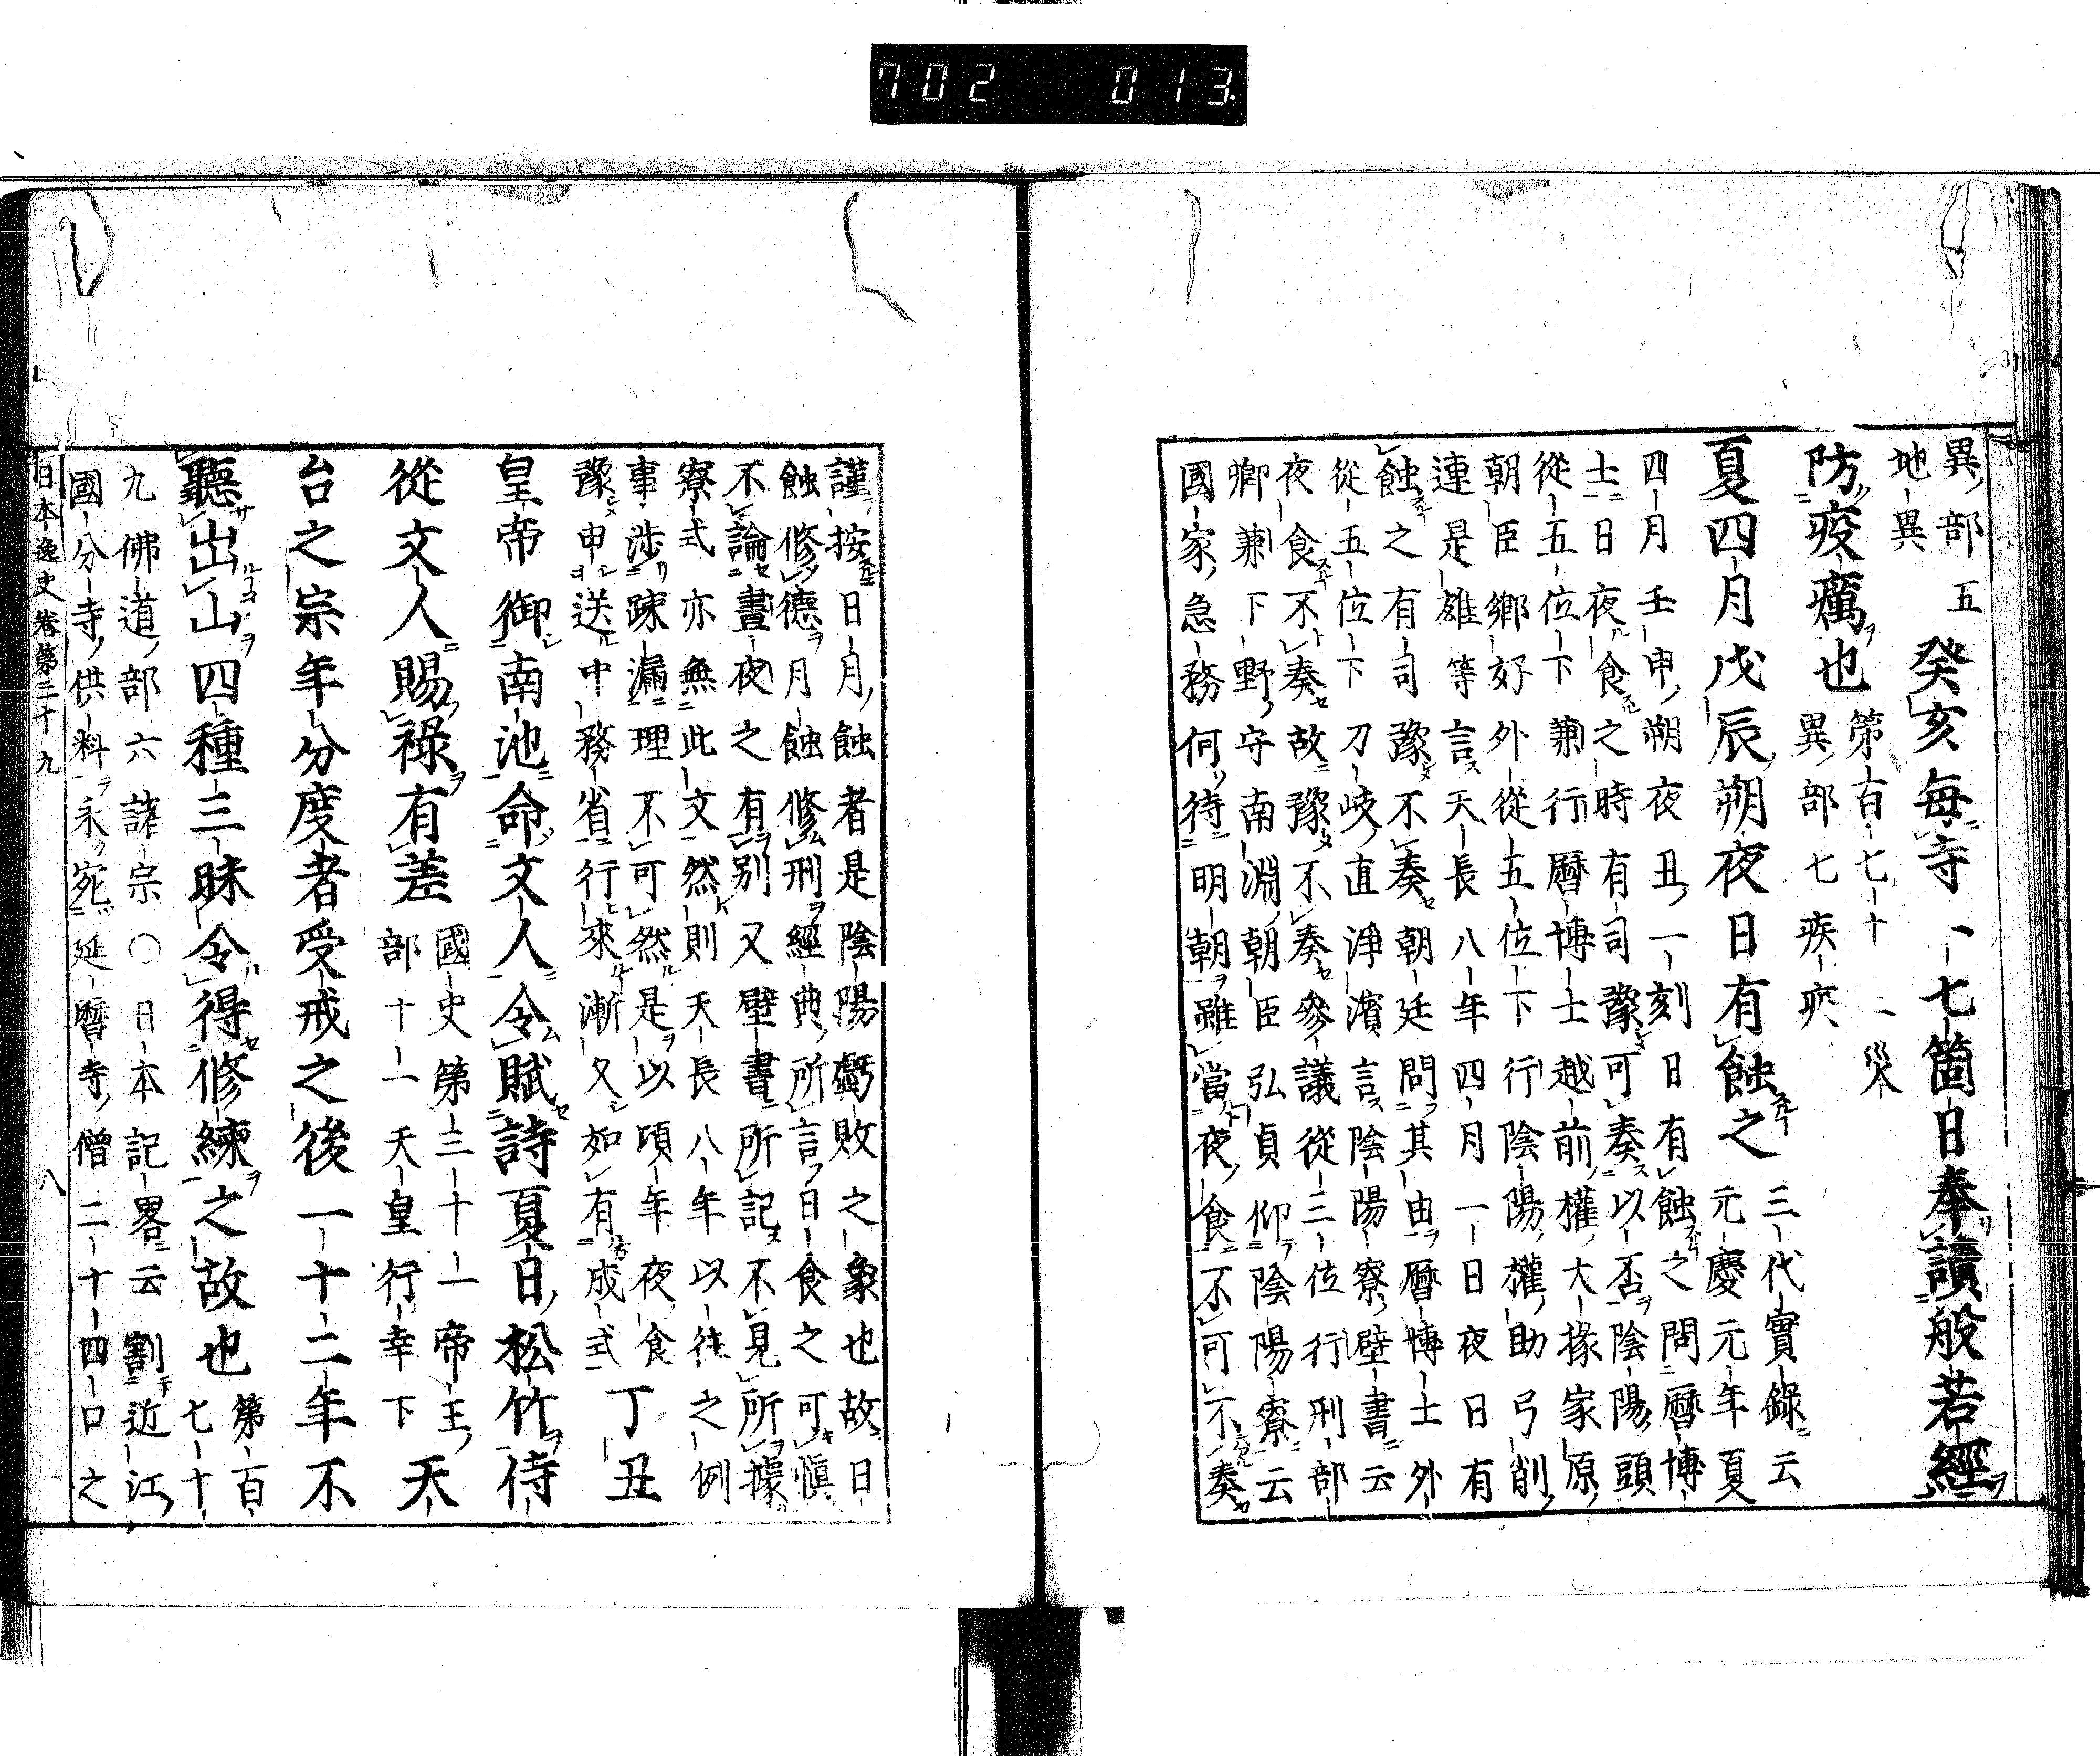 702 013
異部五
地異
癸亥每寺一七箇日奉讀般若經
防疫癘也
第百七十二災
異部七疾疾
夏四月戊辰朔夜日有蝕之
三代實錄云
元慶元年夏
四月壬申朔夜丑一刻日有蝕之問曆博
士二日夜食之時有司豫可奏以否陰陽頭
從五位下兼行曆博士越前權大掾家原
朝臣鄉好外從五位下行陰陽權助弓削
連是雄等言天長八年四月一日夜日有
蝕之有司豫不奏朝廷問其由曆博士外
從五位下刀岐直淨濱言陰陽寮壁書云
夜食不奏故豫不奏參議從三位行刑部
卿兼下野守南淵朝臣弘貞仰陰陽寮云
國家急務何待明朝雖當夜食不可不奏
謹按日月蝕者是陰陽虧敗之象也故日
蝕修德月蝕修刑經典所言日食之可愼
不論晝夜之有別又壁書所記不見所據
寮式亦無此文然則天長八年以往之例
事涉疎漏理不可然是以頃年夜食
豫申送中務省行來漸久如有成式
丁丑
皇帝御南池命文人令賦詩夏日松竹侍
從文人賜祿有差
國史第三十一帝王
部十一天皇行幸下
天
台之宗年分度者受戒之後一十二年不
聽出山四種三昧令得修練之故也
第百
七十
九佛道部六諸宗〇日本記畧云割近江
國分寺供料永宛延曆寺僧二十四口之
日本逸史卷第三十九
八